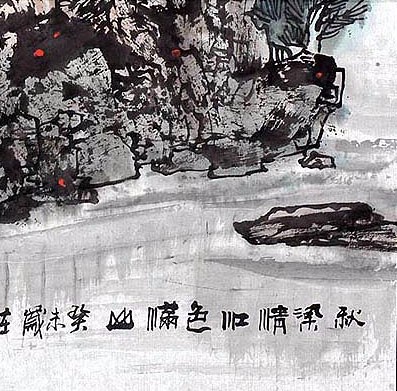 秋染清江色滿山癸未歲在